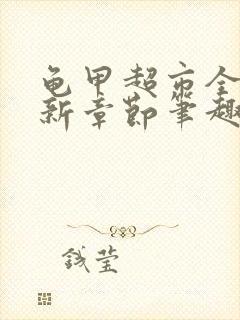 龟甲超市全
新章节笔趣
钱莹